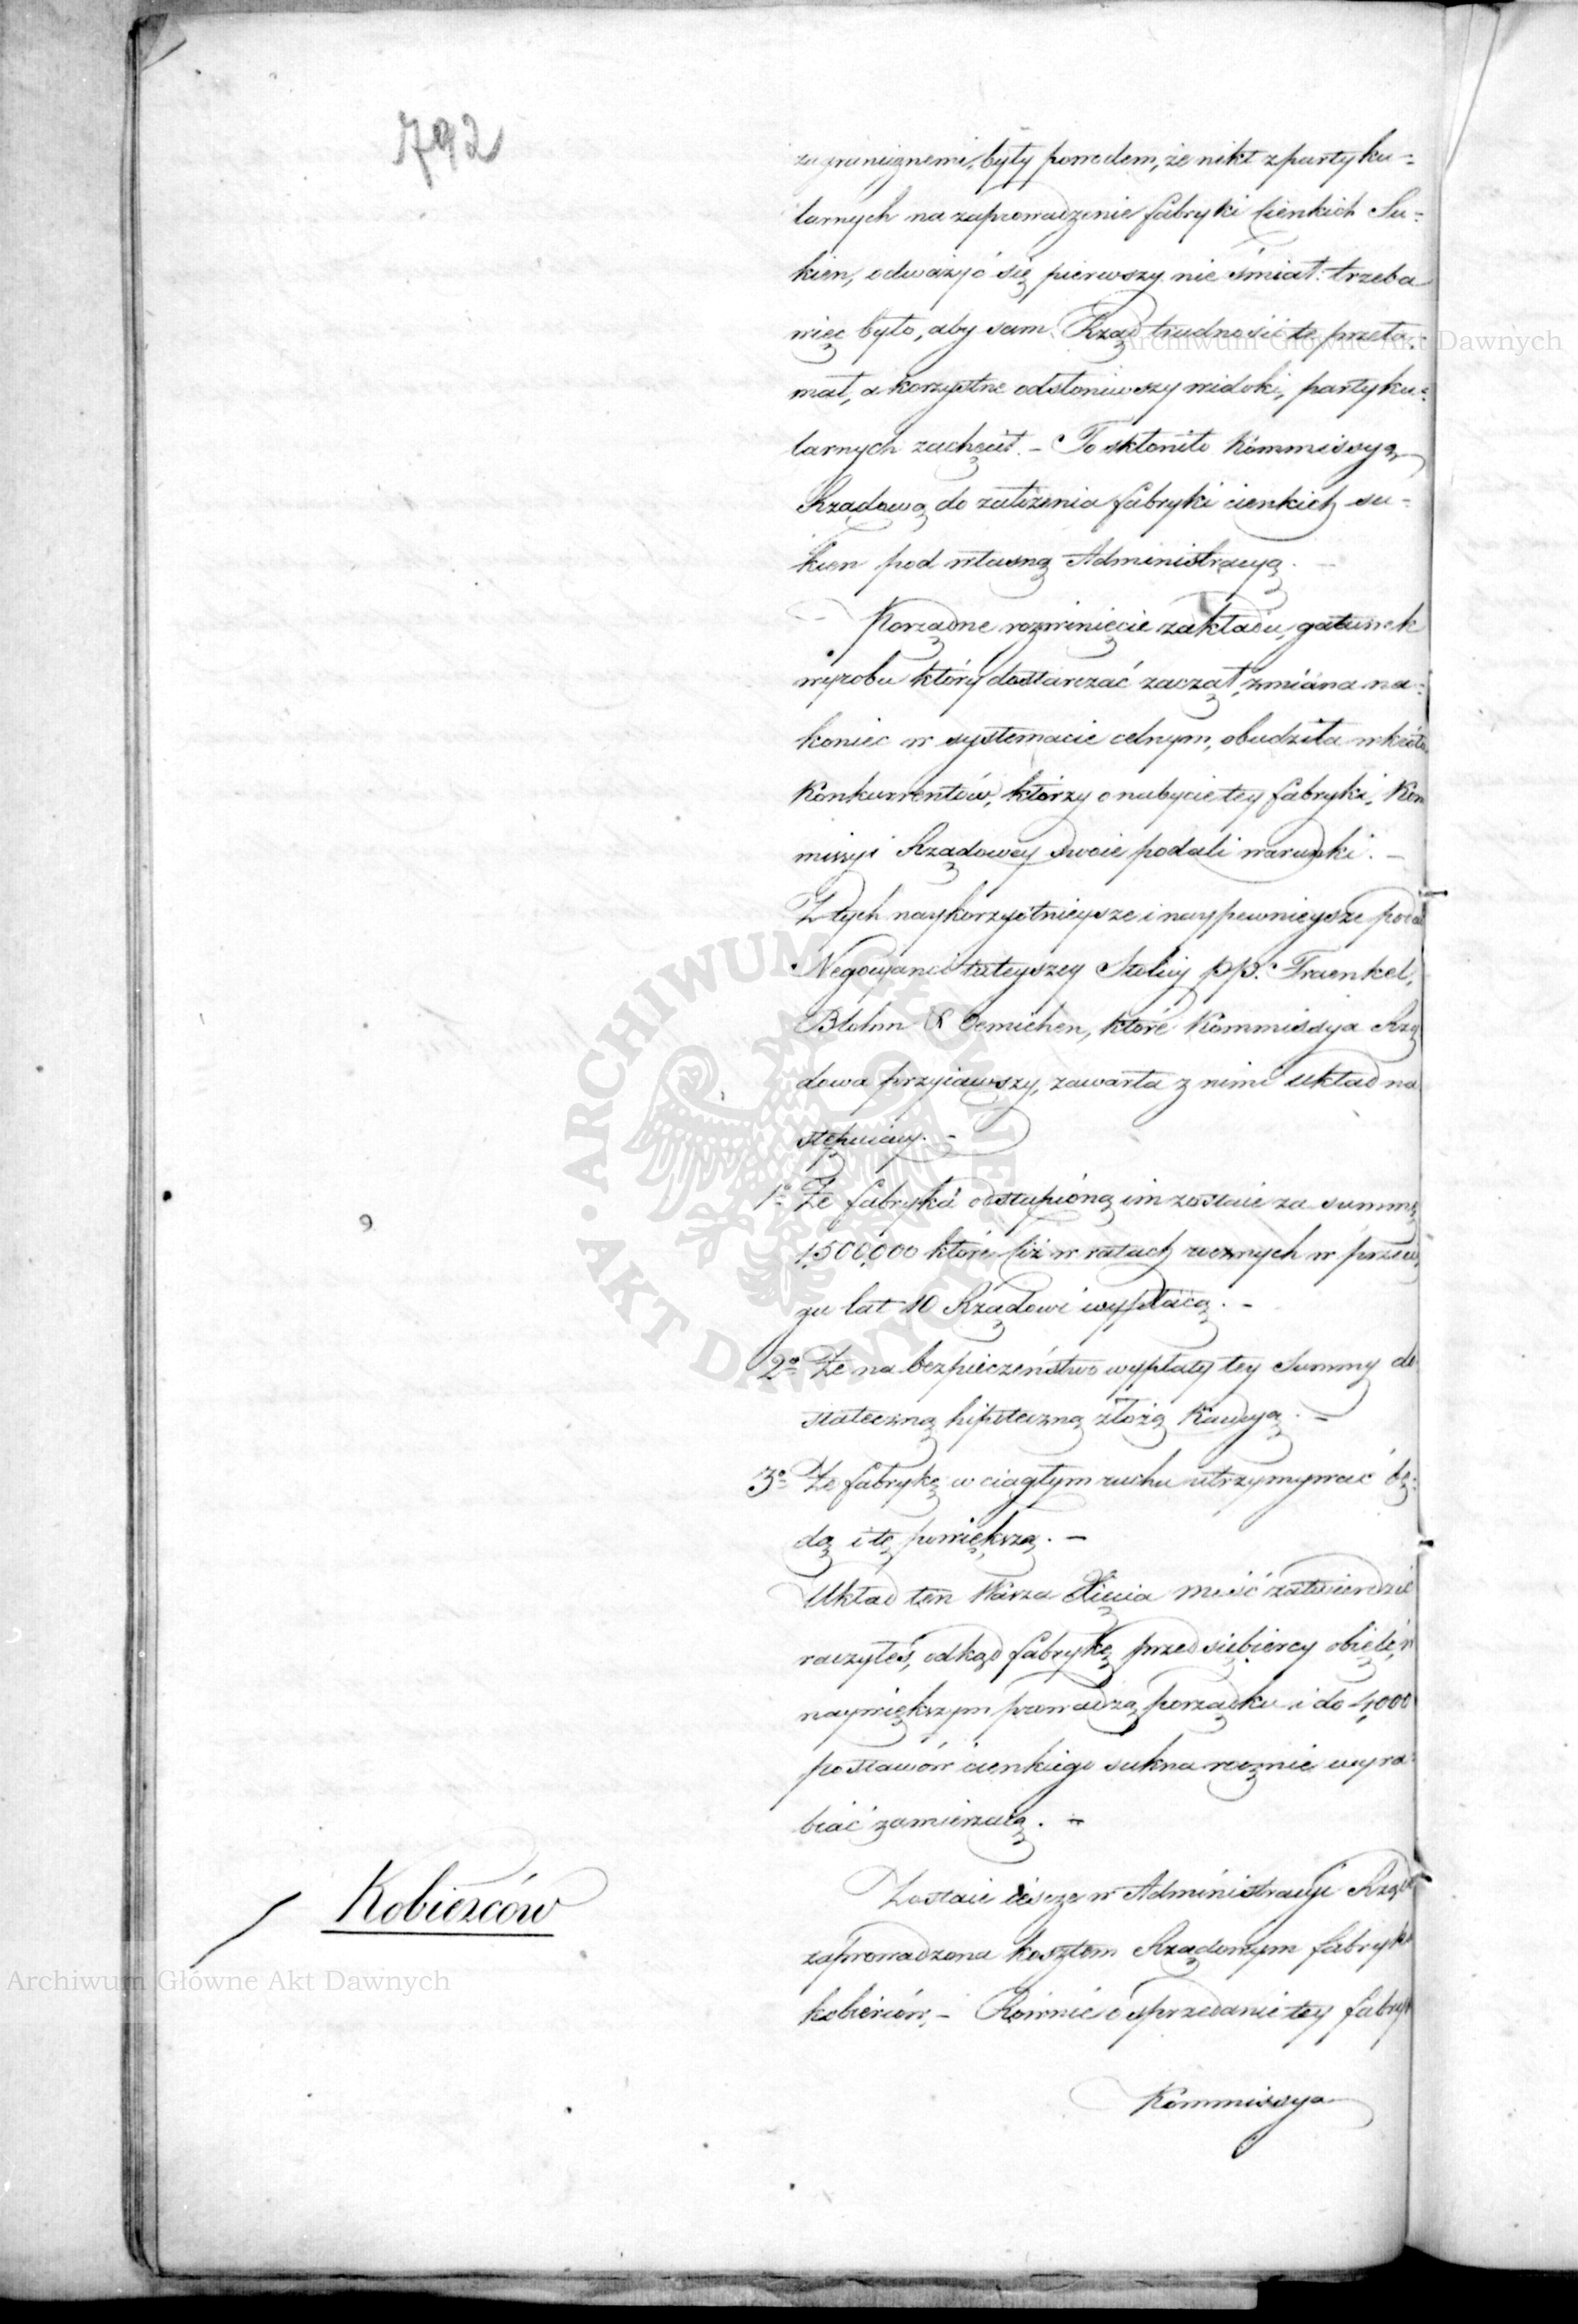 792
zagranicznemi, były powodem, że nikt z partyku=
larnych na zaprowadzenie fabryki cienkich Su=
kien, odważyć się pierwszy nie śmiał: trzeba
więc było, aby sam Rząd trudności te przeła=
mał, a korzystne odsłoniwszy widoki, partyku=
larnych zachęcił. – To skłoniło Kommissyą
Rządową do założenia fabryki cienkich su=
kien pod własną Administracyą. –
Porządne rozwinięcie zakładu, gatunek
wyrobu który dostarczać zaczął, zmiana na=
koniec w systemacie celnym, obudziła wkrótce
Konkurrentów, którzy o nabycie tey fabryki, Kom
missyi Rządowey swoie podali warunki. –
Z tych naykorzystnieysze i naypewnieysze poda
Negocyanci tuteyszey Stolicy pp. Fraenkel,
Blohm & Oemichen, które Kommissya Rzą
dowa przyiąwszy, zawarła z nimi układ na
stępuiący. –
1º Że fabryka odstąpioną im zostaie za summę
1,500,000 które iuż w ratach rocznych w przecią
gu lat 10 Rządowi wypłacą. –
2º Że na bezpieczeństwo wypłaty tey Summy do
stateczną hipoteczną złożą Kaucyą. –
3º Że fabrykę w ciągłym ruchu utrzymywać bę=
dą i tę powiększą. –
Układ ten Wasza Xiążęca Mość zatwierdzić
raczyłeś, odkąd fabrykę przedsiębiercy obięli, w
naywiększym prowadzą porządku i do 4,000
postawów cienkiego sukna rocznie wyra=
biać zamierzaią. –
Kobierców
Zostaie ieszcze w Administracyi Rządu
zaprowadzona kosztem Rządowym fabryka
kobierców, – Równie o sprzedanie tey fabryk
Kommissya
Archiwum Główne Akt Dawnych
ARCHIWUM GŁÓWNE AKT DAWNYCH
Archiwum Główne Akt Dawnych